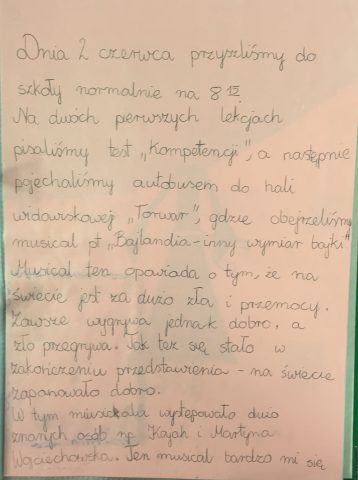 Dnia 2 czerwca przyszliśmy do
szkoły normalnie na 8 15.
Na dwóch pierwszych lekcjach
pisaliśmy test „Kompetencji", a następnie
pojechaliśmy autobusem do hali
widowskowej „Torwar", gdzie obejrzeliśmy
musical pt „Bajlandia - inny wymiar bajki"
Musical ten opowiada o tym, że na
świecie jest za dużo zła i przemocy.
Zawsze wygrywa jednak dobro, a
zło przegrywa. Tak też się stało w
zakończeniu przedstawienia - na świecie
zapanowało dobro.
W tym musicalu występowało dużo
znanych osób np Kajah i Martyna
Wojciechowska. Ten musical bardzo mi się